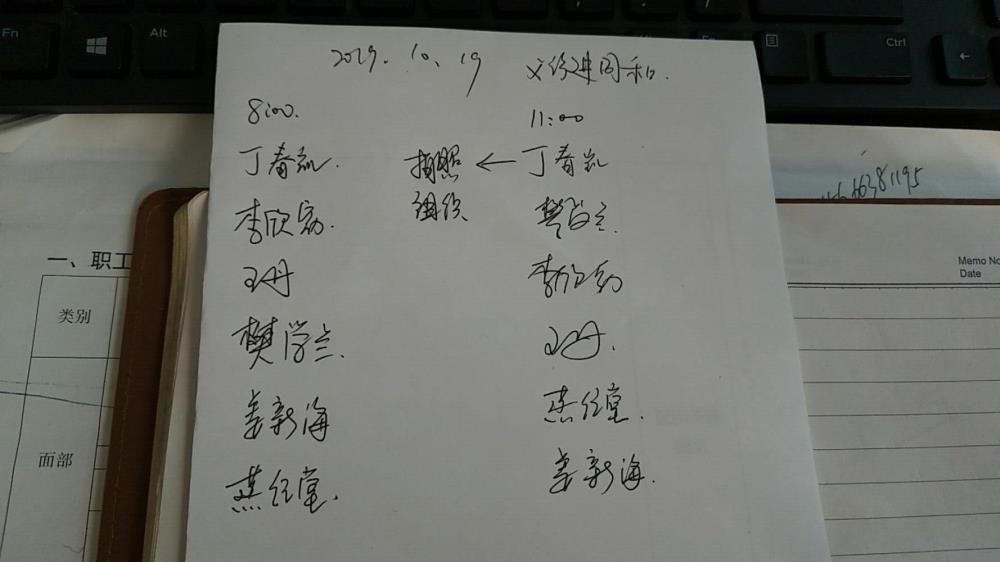 Fn
Alt
Ctrl
2019.10.19
8:00.
11:00
丁春凯.
拍照 ← 丁春凯
组织
李欣宏
樊学兰.
王丹
李欣宏
樊学兰.
王丹.
姜新海
燕经堂.
燕经堂.
姜新海.
66381195
一、职工
类别
面部
Memo No
Date